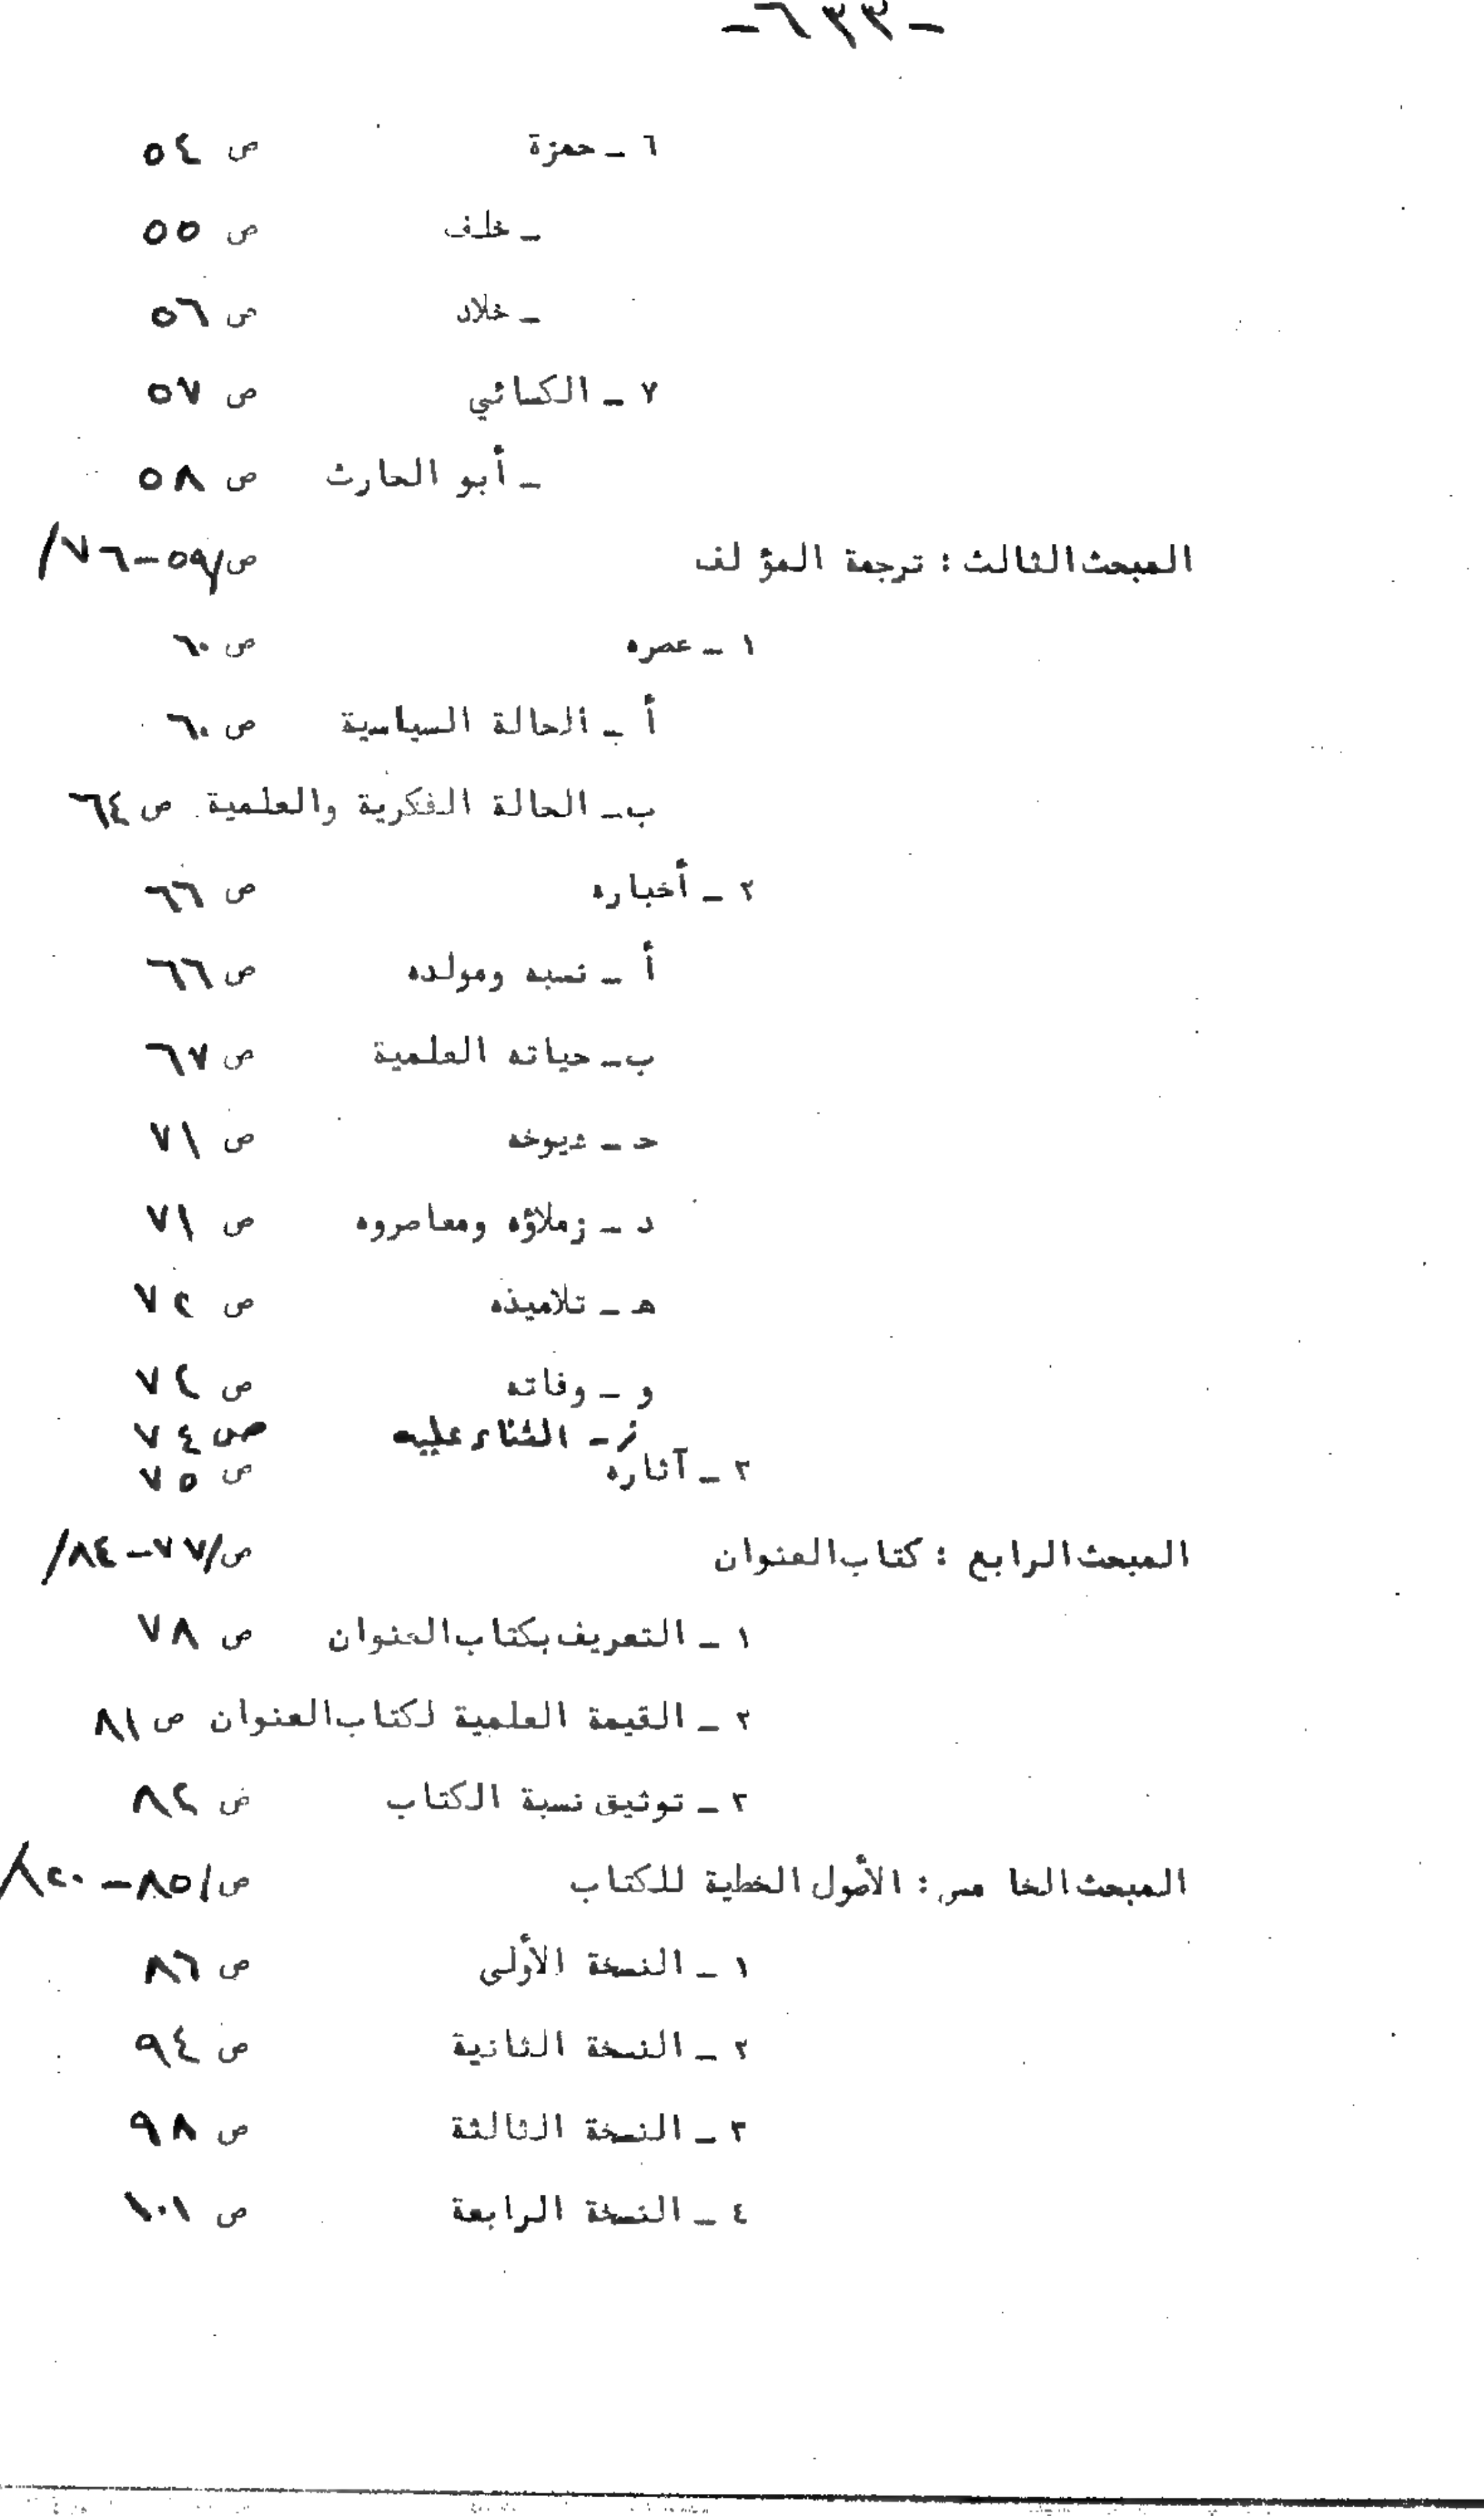 -٦٣٣-
٦ - حمزة ص ٥٤
- خلف ص ٥٥
- خلاد ص ٥٦
٧ - الكسائي ص ٥٧
- أبو الحارث ص ٥٨
المبحث الثالث : ترجمة المؤلف ص/٥٩-٧٦/
١ - عصره ص ٦٠
أ - الحالة السياسية ص ٦٠
ب - الحالة الفكرية والعلمية ص ٦٤
٢ - أخباره ص ٦٦
أ - نسبه ومولده ص ٦٦
ب - حياته العلمية ص ٦٧
ح - شيوخه ص ٧١
د - زملاؤه ومعاصروه ص ٧١
هـ - تلاميذه ص ٧٢
و - وفاته ص ٧٢
ز - الثناء عليه ص ٧٤
٣ - آثاره ص ٧٥
المبحث الرابع : كتاب العنوان ص/٧٧-٨٤/
١ - التعريف بكتاب العنوان ص ٧٨
٢ - القيمة العلمية لكتاب العنوان ص ٨١
٣ - توثيق نسبة الكتاب ص ٨٢
المبحث الخامس : الأصول الخطية للكتاب ص/٨٥-
١ - النسخة الأولى ص ٨٦
٢ - النسخة الثانية ص ٩٤
٣ - النسخة الثالثة ص ٩٨
٤ - النسخة الرابعة ص ١٠١